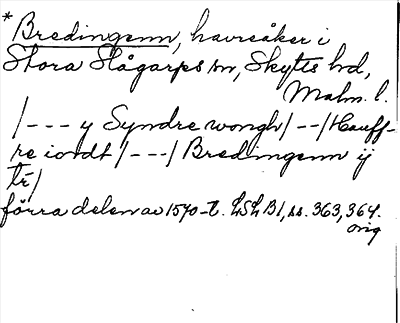 *Bredingenn, havreåker i
Stora Slågarps sn, Skytts hd,
Malm. l.
/--- y Syndre wongh/--/Hauff-
re iordt/---/Bredingenn ij
tr/
förra delen av 1570-t. LSLB1, ss. 363, 364.
orig